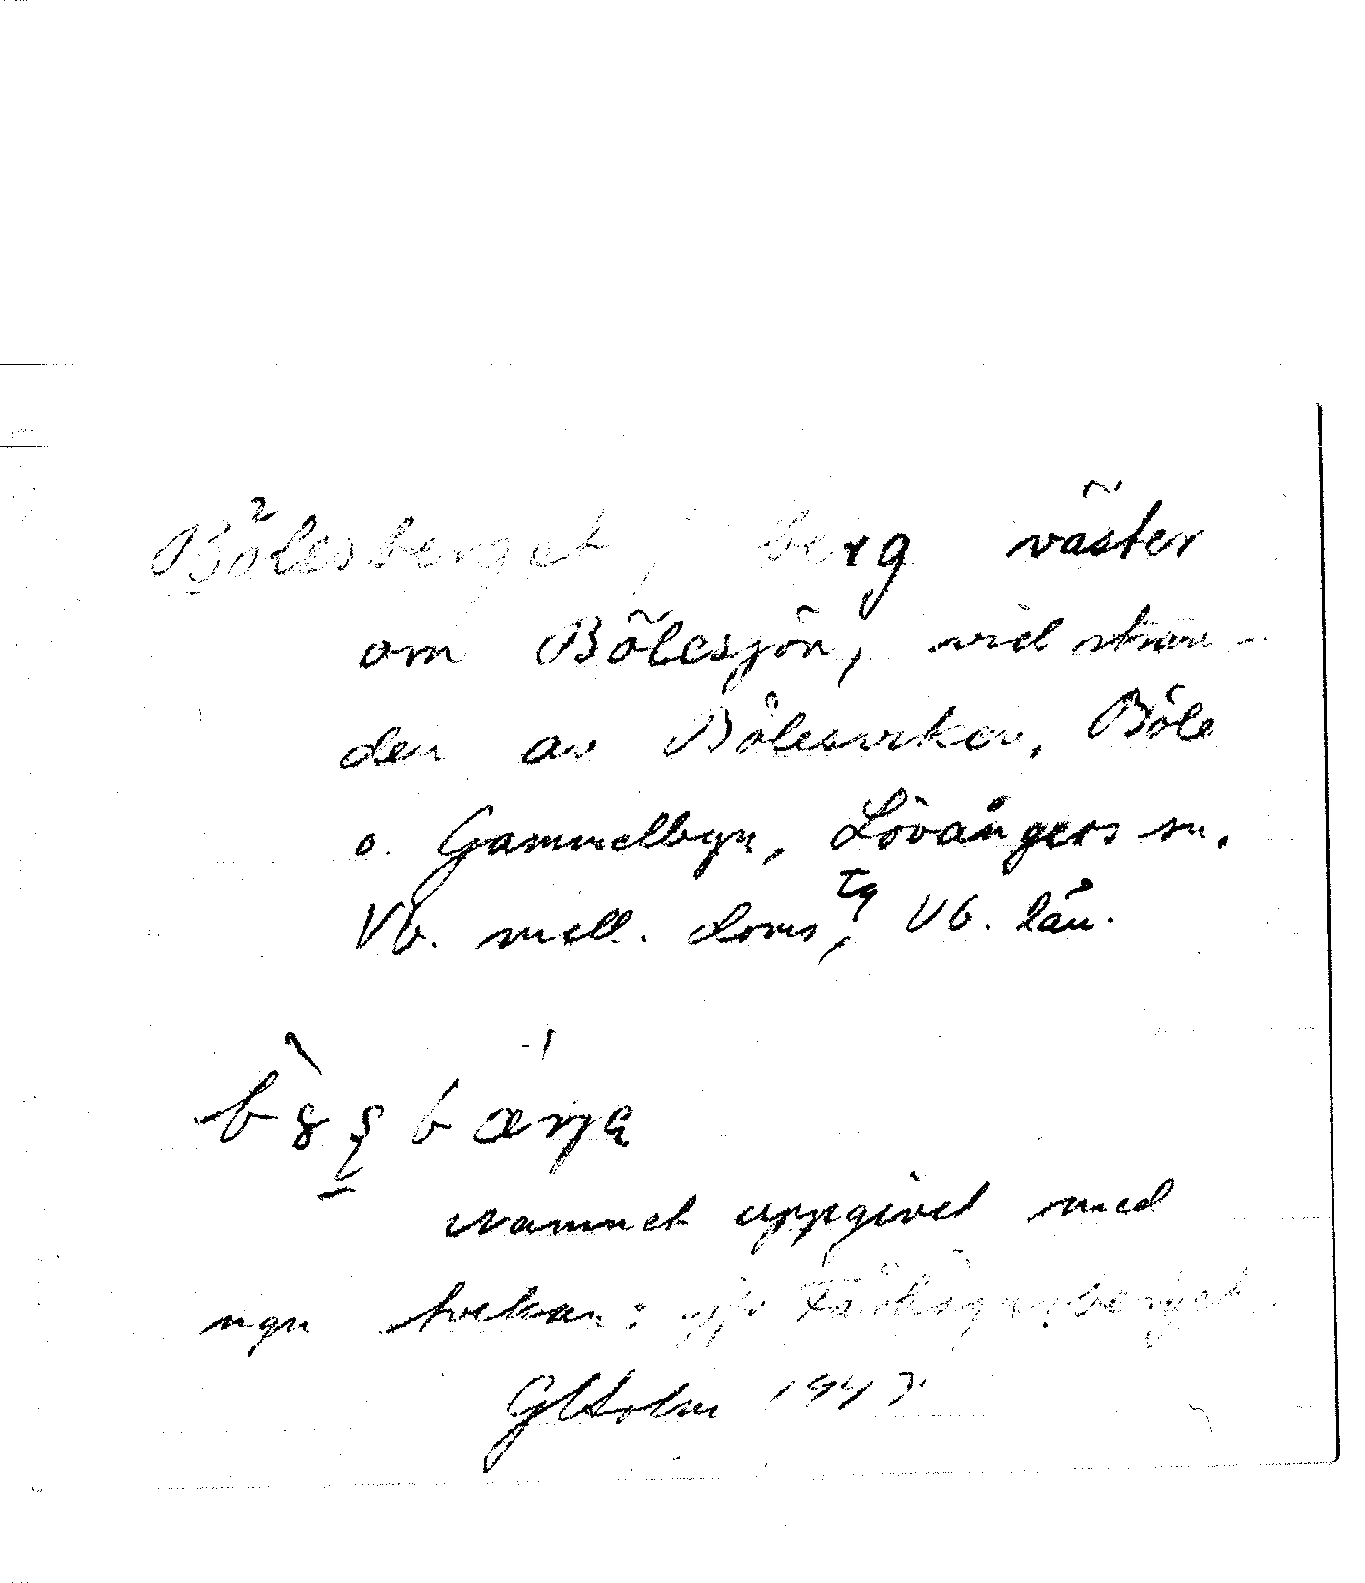 Bölesberget, berg väster
om Bölesjön, vid stran-
den av Böleviken, Böle
o. Gammelbyn, Lövångers sn.
Vb. mell. doms tg, Vb. län.
namnet uppgivet med
ngn tvekan: jfr
GHolm 1947